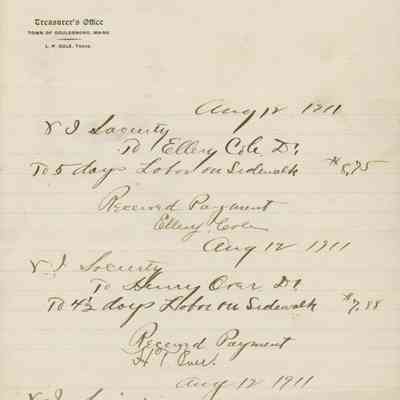 Treasurer's Office
TOWN OF GOULDSBORO, MAINE
L. P. COLE, Treas.
Aug 12 1911
V I Society
To Ellery Cole Dr.
To 5 days Labor on Sidewalk $8.75
Received Payment
Ellery Cole
Aug 12 1911
V. I. Society
To Henry Over Dr.
To 4½ days Labor on Sidewalk $7.88
Received Payment
H T Over.
Aug 12 1911